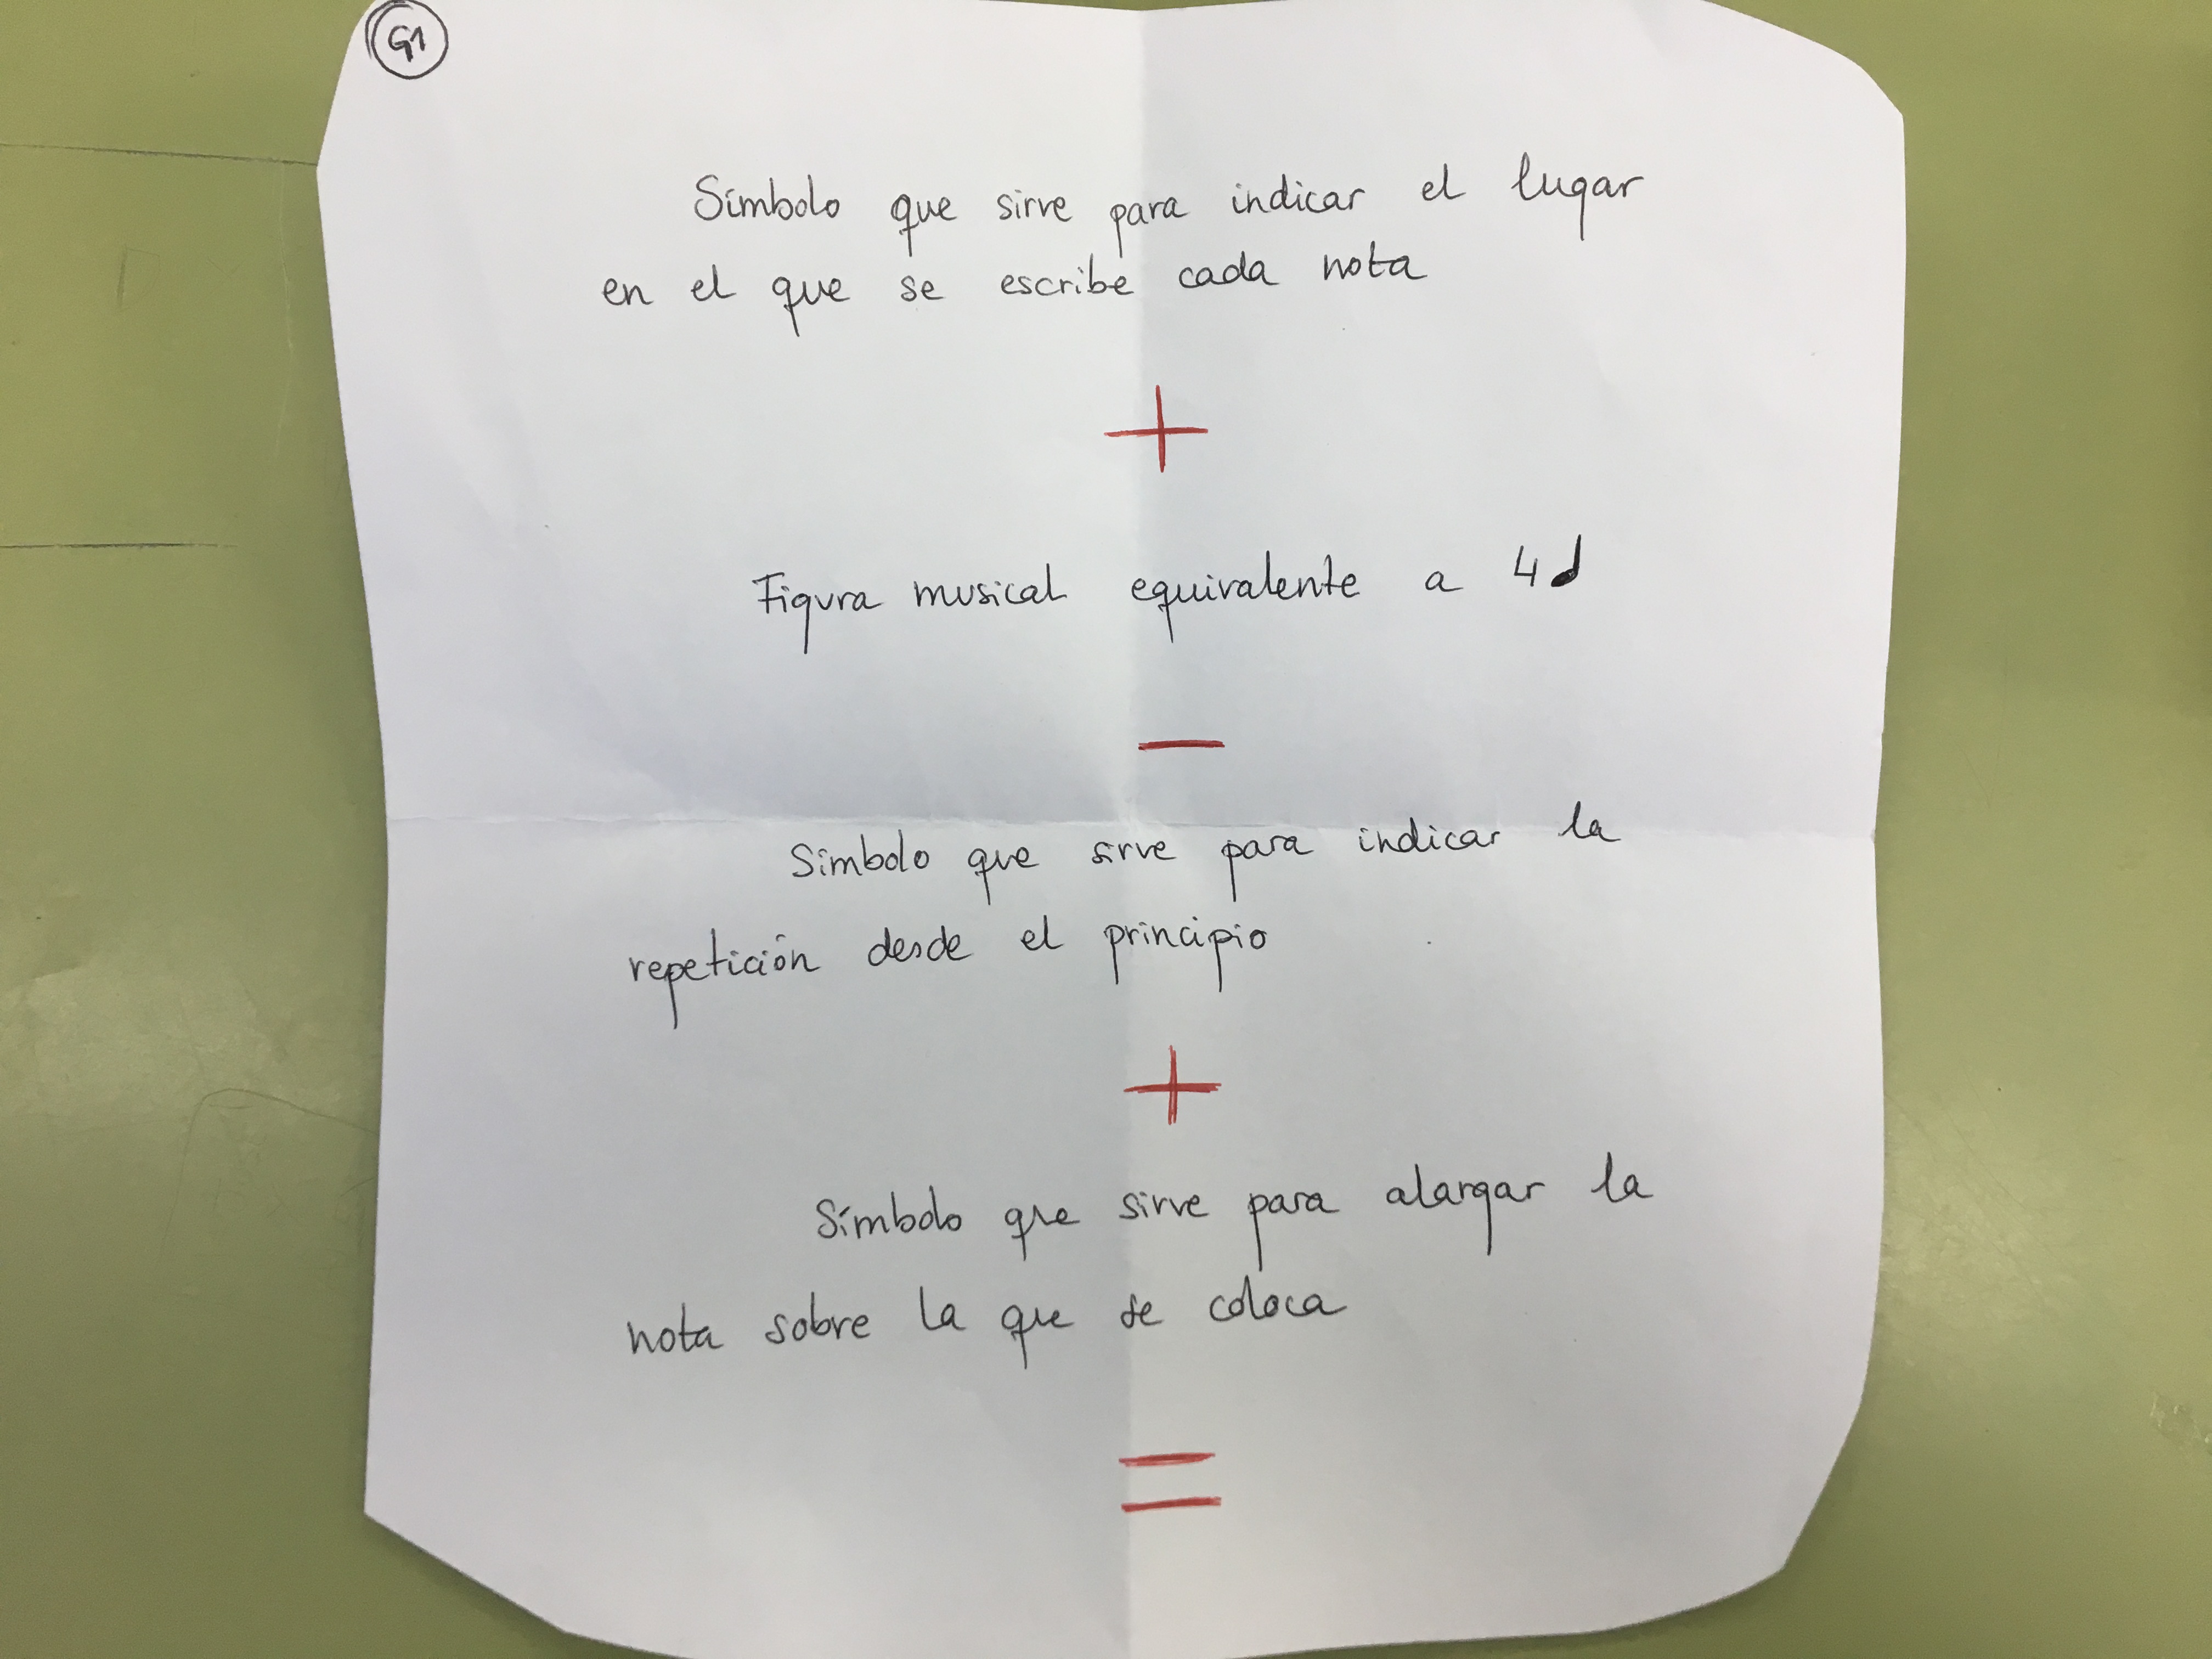 G1
Símbolo que sirve para indicar el lugar
en el que se escribe cada nota
+
Figura musical equivalente a 4♩
−
Símbolo que sirve para indicar la
repetición desde el principio
+
Símbolo que sirve para alargar la
nota sobre la que se coloca
=